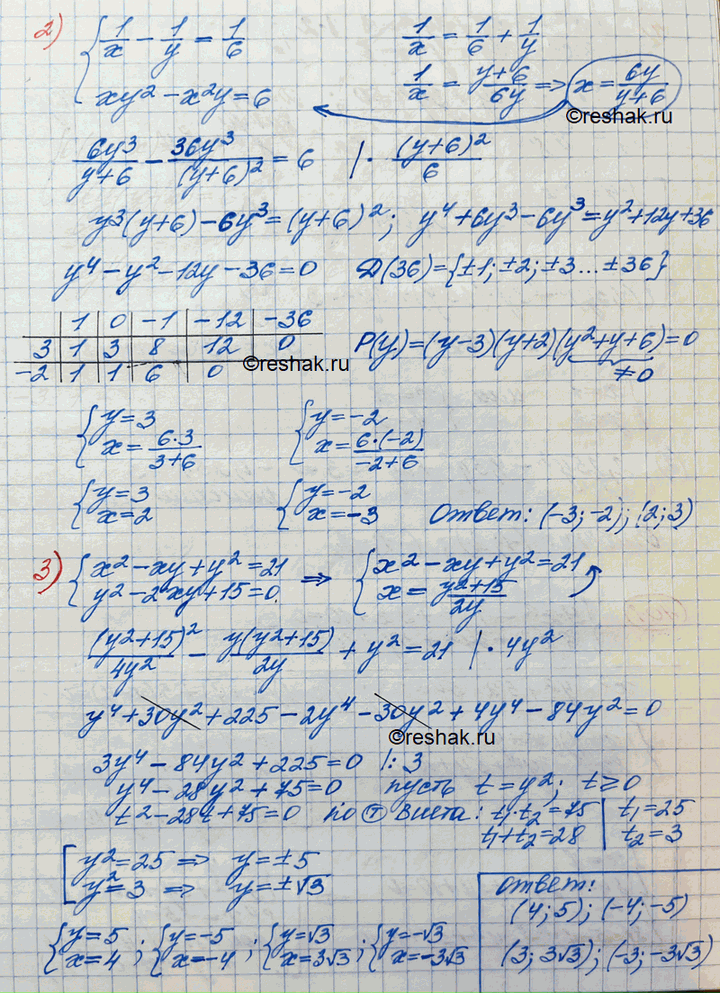 2) { 1/x − 1/y = 1/6
xy² − x²y = 6
1/x = 1/6 + 1/y
1/x = (y+6)/6y => x = 6y/(y+6)
©reshak.ru
6y³/(y+6) − 36y³/(y+6)² = 6 | · (y+6)²/6
y³(y+6) − 6y³ = (y+6)²; y⁴+6y³−6y³=y²+12y+36
y⁴ − y² − 12y − 36 = 0 D(36) = {±1; ±2; ±3 ... ±36}
| 1 | 0 | −1 | −12 | −36
3 | 1 | 3 | 8 | 12 | 0
−2 | 1 | 1 | 6 | 0
©reshak.ru
P(y) = (y−3)(y+2)(y²+y+6) = 0
≠0
{ y = 3
x = 6·3/(3+6)
{ y = −2
x = 6·(−2)/(−2+6)
{ y = 3
x = 2
{ y = −2
x = −3
Ответ: (−3; −2); (2; 3)
3) { x² − xy + y² = 21
y² − 2xy + 15 = 0.
=> { x² − xy + y² = 21
x = (y²+15)/2y
(y²+15)²/4y² − y(y²+15)/2y + y² = 21 | · 4y²
y⁴ + 30y² + 225 − 2y⁴ − 30y² + 4y⁴ − 84y² = 0
©reshak.ru
3y⁴ − 84y² + 225 = 0 |: 3
y⁴ − 28y² + 75 = 0 пусть t = y²; t ≥ 0
t² − 28t + 75 = 0 по Т Виета: t₁·t₂ = 75 | t₁ = 25
t₁+t₂ = 28 | t₂ = 3
[ y² = 25 => y = ±5
y² = 3 => y = ±√3
{ y = 5
x = 4 ;
{ y = −5
x = −4 ;
{ y = √3
x = 3√3 ;
{ y = −√3
x = −3√3
Ответ:
(4; 5); (−4; −5)
(3; 3√3); (−3; −3√3)